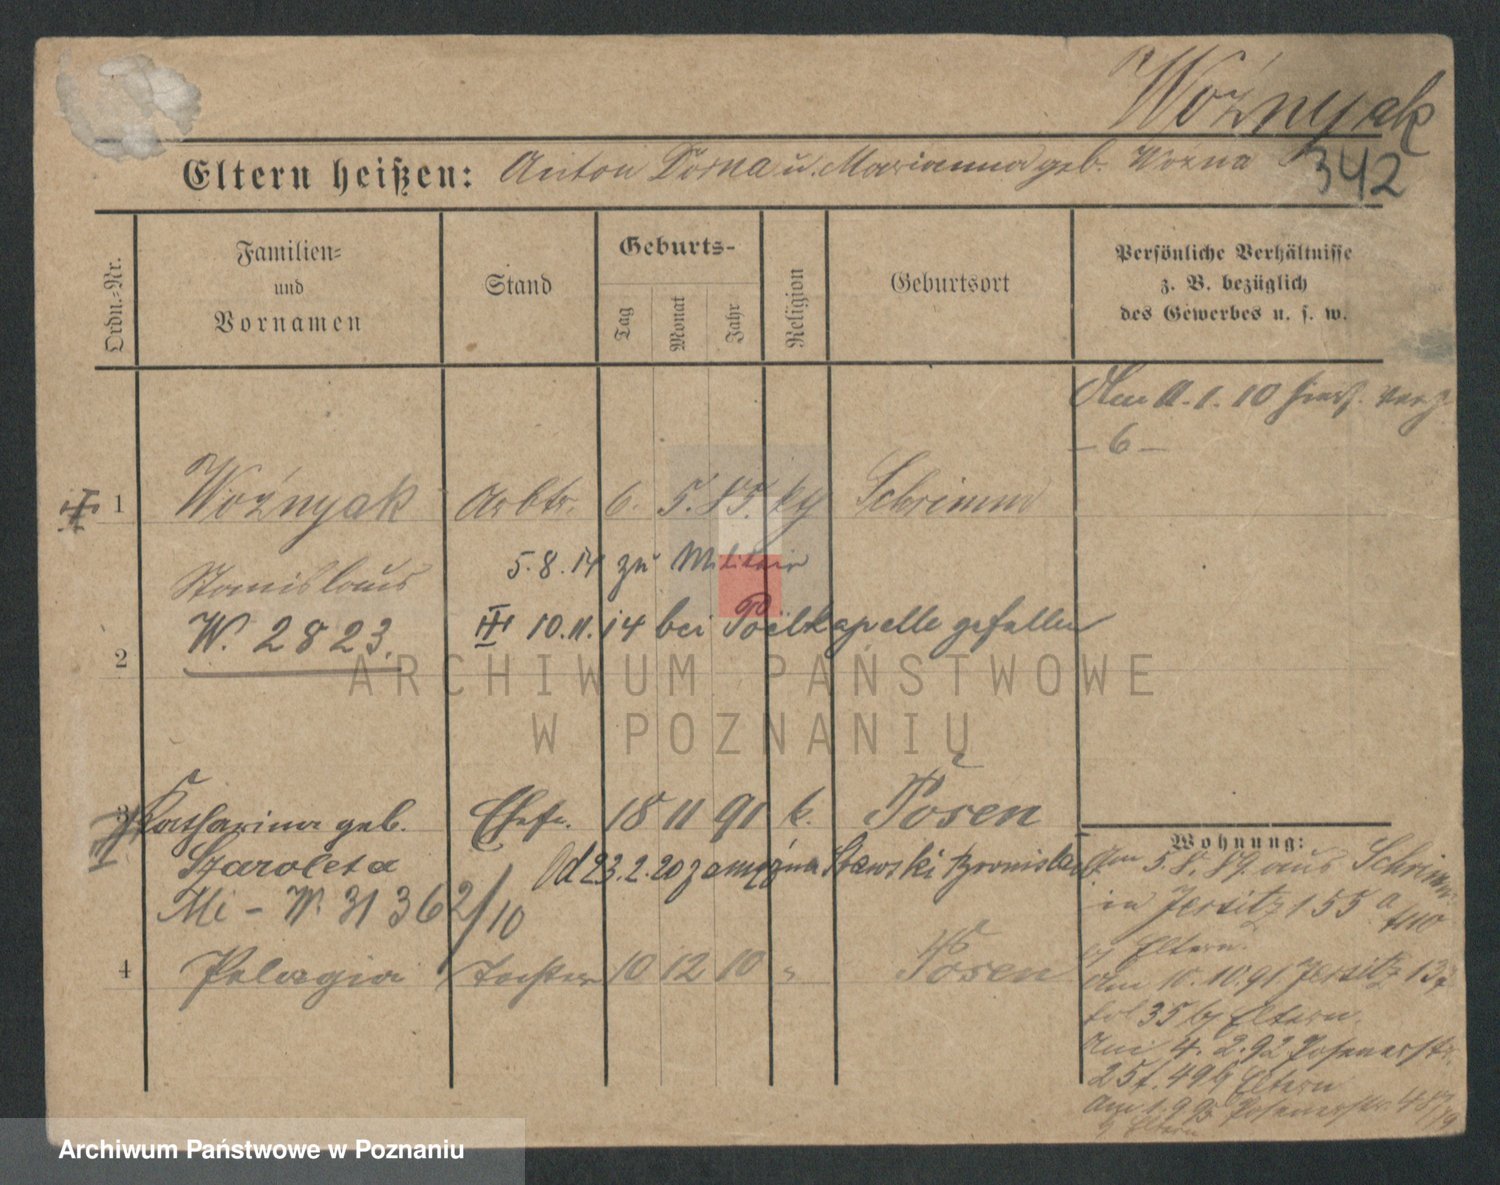 Woźnyak
342
Eltern heißen: Anton Dorna u. Marianna geb. Wozna
Ordn.-Nr.
Familien-
und
Vornamen
Stand
Geburts-
Tag
Monat
Jahr
Religion
Geburtsort
Persönliche Verhältnisse
z. B. bezüglich
des Gewerbes u. s. w.
Am 11.1.10
– 6 –
1 Woźnyak Arbtr. 6. 5. 85. Schrimm
Stanislaus
5.8.14 zu Militair
W. 2823.
10.11.14 bei Poëlkapelle gefallen
2
ARCHIWUM PAŃSTWOWE
W POZNANIU
3 Katharina geb. Ehefr. 18 11 91 k. Posen
Szaroleta
Od 23.2.20 zamężna
Mi – W. 31362/10
4 Pelagia Tochter 10 12 10 " Posen
Wohnung:
Am 5.8.89 aus Schrimm
in Jersitz 155a
bj Eltern.
Am 10.10.91 Jersitz
35 bj Eltern.
Am 4.2.92 Posenerstr.
25 f. 49 bj Eltern
Posenerstr.
bj Eltern
Archiwum Państwowe w Poznaniu